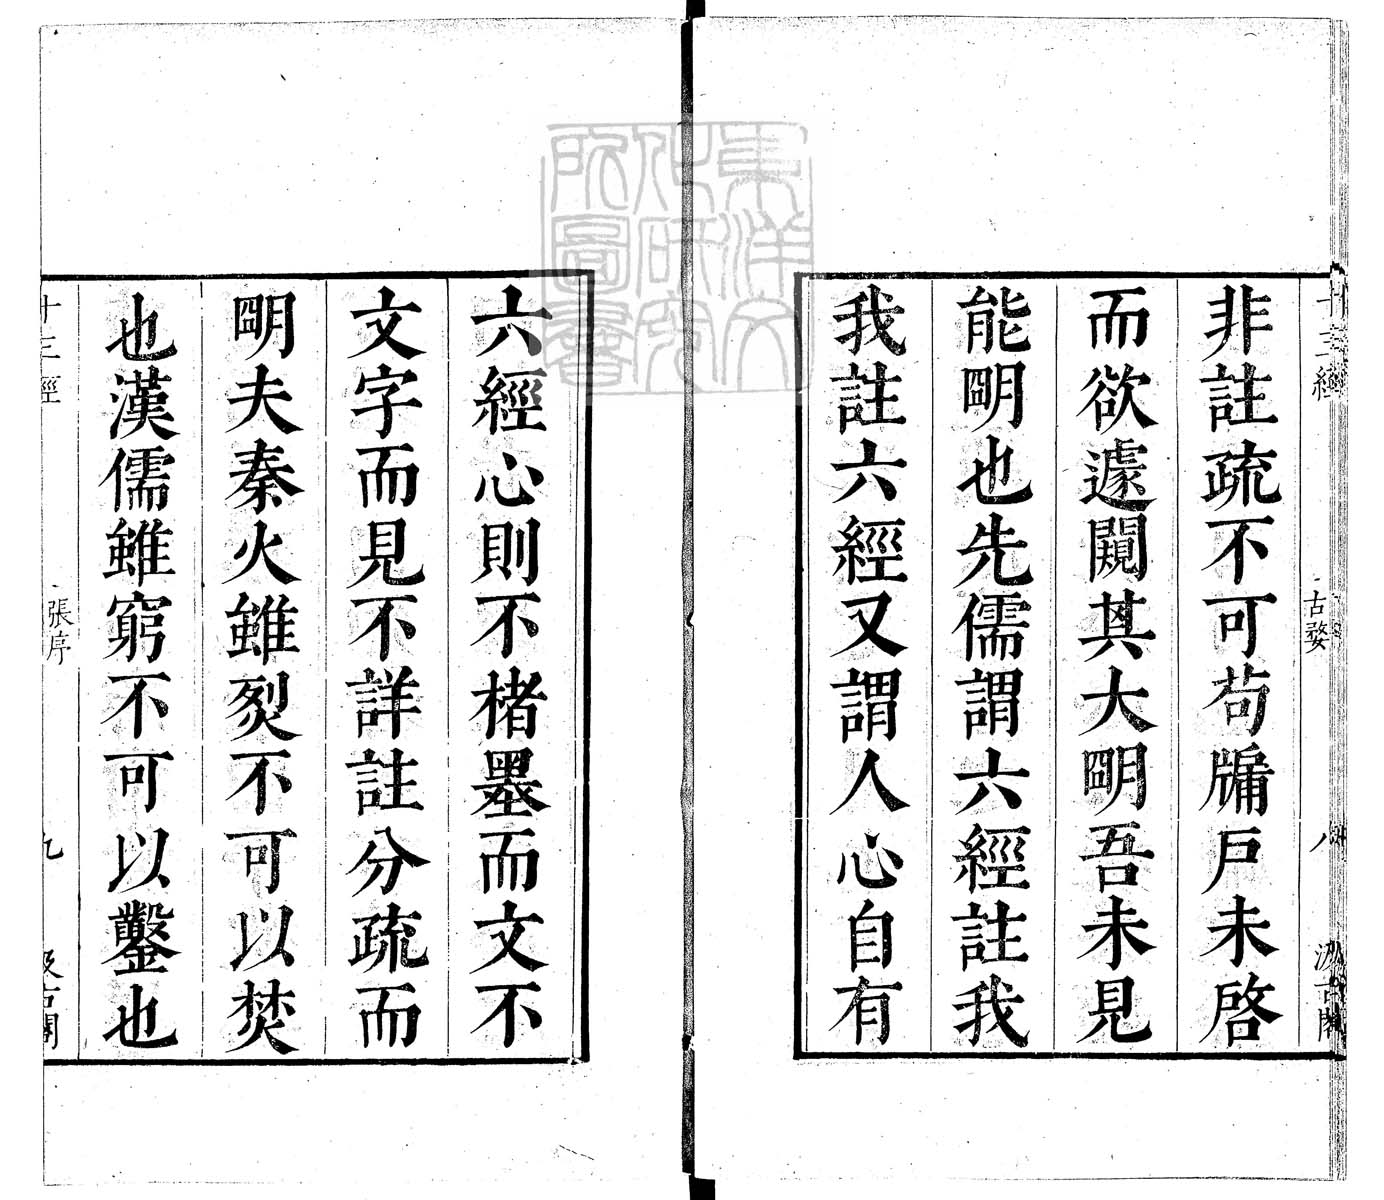 十三經
古婺
八
汲古閣
非註疏不可茍牖戸未啓
而欲遽闚其大朙吾未見
能朙也先儒謂六經註我
我註六經又謂人心自有
六經心則不楮墨而文不
文字而見不詳註分疏而
朙夫秦火雖烈不可以焚
也漢儒雖窮不可以鑿也
十三經
張序
九
汲古閣
東洋文
化研究
所圖書